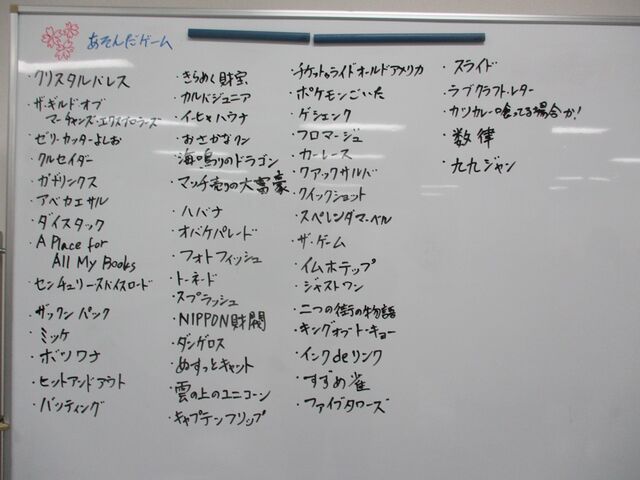 あそんだゲーム
・クリスタルパレス
・ザ・ギルド オブ
マーチャンズ・エクスプローラーズ
・ゼリーカッターよしお
・クルセイダー
・ガドリンクス
・アベカエサル
・ダイスタック
・A Place for
All My Books
・センチュリースパイスロード
・ザックン パック
・ミッケ
・ボツワナ
・ヒットアンドアウト
・バッティング
・きらめく財宝
・カルバジュニア
・イーヒャハウナ
・おさかなクン
・海鳴りのドラゴン
・マッチ売りの大富豪
・ハバナ
・オバケパレード
・フォトフィッシュ
・トーネード
スプラッシュ
・NIPPON財閥
・ダンゲロス
・ぬすっとキャット
・雲の上のユニコーン
・キャプテンフリップ
・チケットトゥライドオールドアメリカ
・ポケモンごいた
・ゲシェンク
・フロマージュ
・カーレース
・クアックサルバ
・クイックショット
・スペレンダマーベル
・ザ・ゲーム
・イムホテップ
・ジャストワン
・二つの街の物語
・キングオブトーキョー
・インクdeリンク
・すずめ雀
・ファイブタワーズ
・スライド
・ラブクラフト・レター
・カツカレー喰ってる場合か!
・数律
・九九ジャン